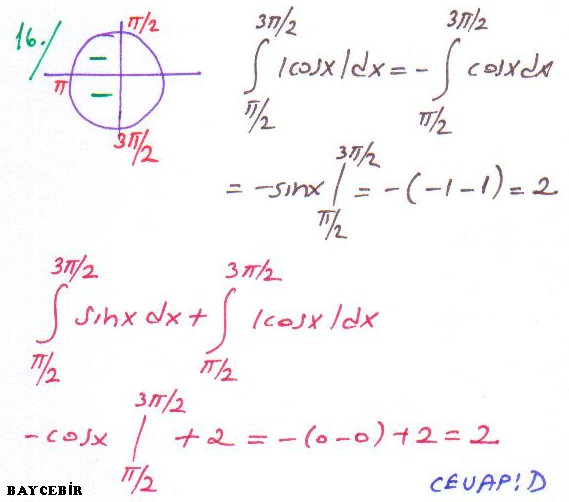 16./
π/2
π
3π/2
∫_{π/2}^{3π/2} |cosx|dx = -∫_{π/2}^{3π/2} cosxdx
= -sinx |_{π/2}^{3π/2} = -(-1-1) = 2
∫_{π/2}^{3π/2} sinx dx + ∫_{π/2}^{3π/2} |cosx|dx
-cosx |_{π/2}^{3π/2} +2 = -(0-0)+2 = 2
CEVAP: D
BAYCEBİR